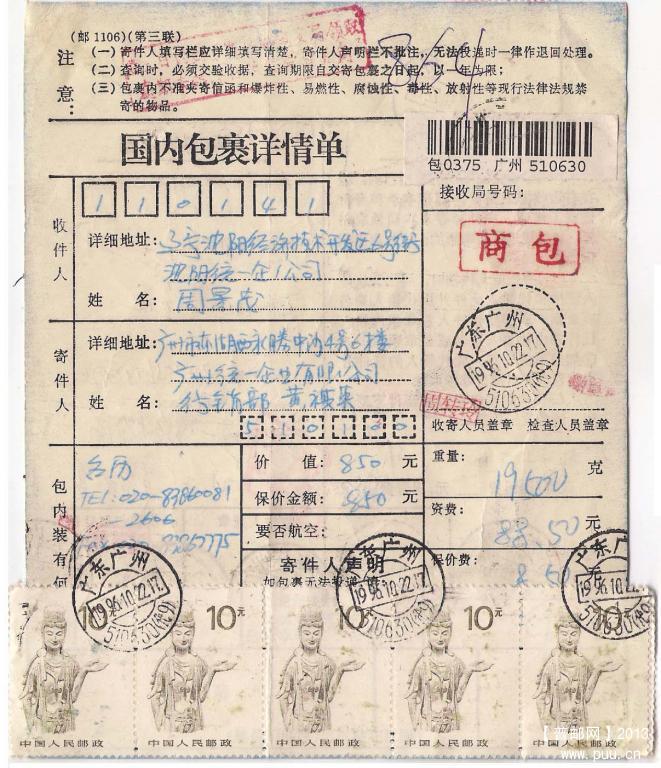 (邮1106)(第三联)
注意：
(一)寄件人填写栏应详细填写清楚，寄件人声明栏不批注，无法投递时一律作退回处理。
(二)查询时，必须交验收据，查询期限自交寄包裹之日起，以一年为限；
(三)包裹内不准夹寄信函和爆炸性、易燃性、腐蚀性、毒性、放射性等现行法律法规禁
寄的物品。
国内包裹详情单
包0375 广州 510630
接收局号码：
110141
商包
收件人
详细地址：辽宁沈阳经济技术开发区6号街
沈阳统一企业公司
姓 名：周景茂
寄件人
详细地址：广州市东湖西永胜中沙4号6楼
广州统一企业有限公司
姓 名：行销部 黄
510100
广东广州
1996.10.22.17
510630(代9)
收寄人员盖章 检查人员盖章
包内装有何
台历
TEL:020-83860081
-2606
价 值：850元
保价金额：850元
要否航空：
重量：19500克
资费：88.50元
保价费：8.50元
寄件人声明
如包裹无法投递
广东广州
1996.10.22.17
510630(代9)
广东广州
1996.10.22.17
510630(代9)
广东广州
1996.10.22.17
510630(代9)
10元 10元 10元 10元 10元
中国人民邮政 中国人民邮政 中国人民邮政 中国人民邮政 中国人民邮政
2013
www.puu.cn